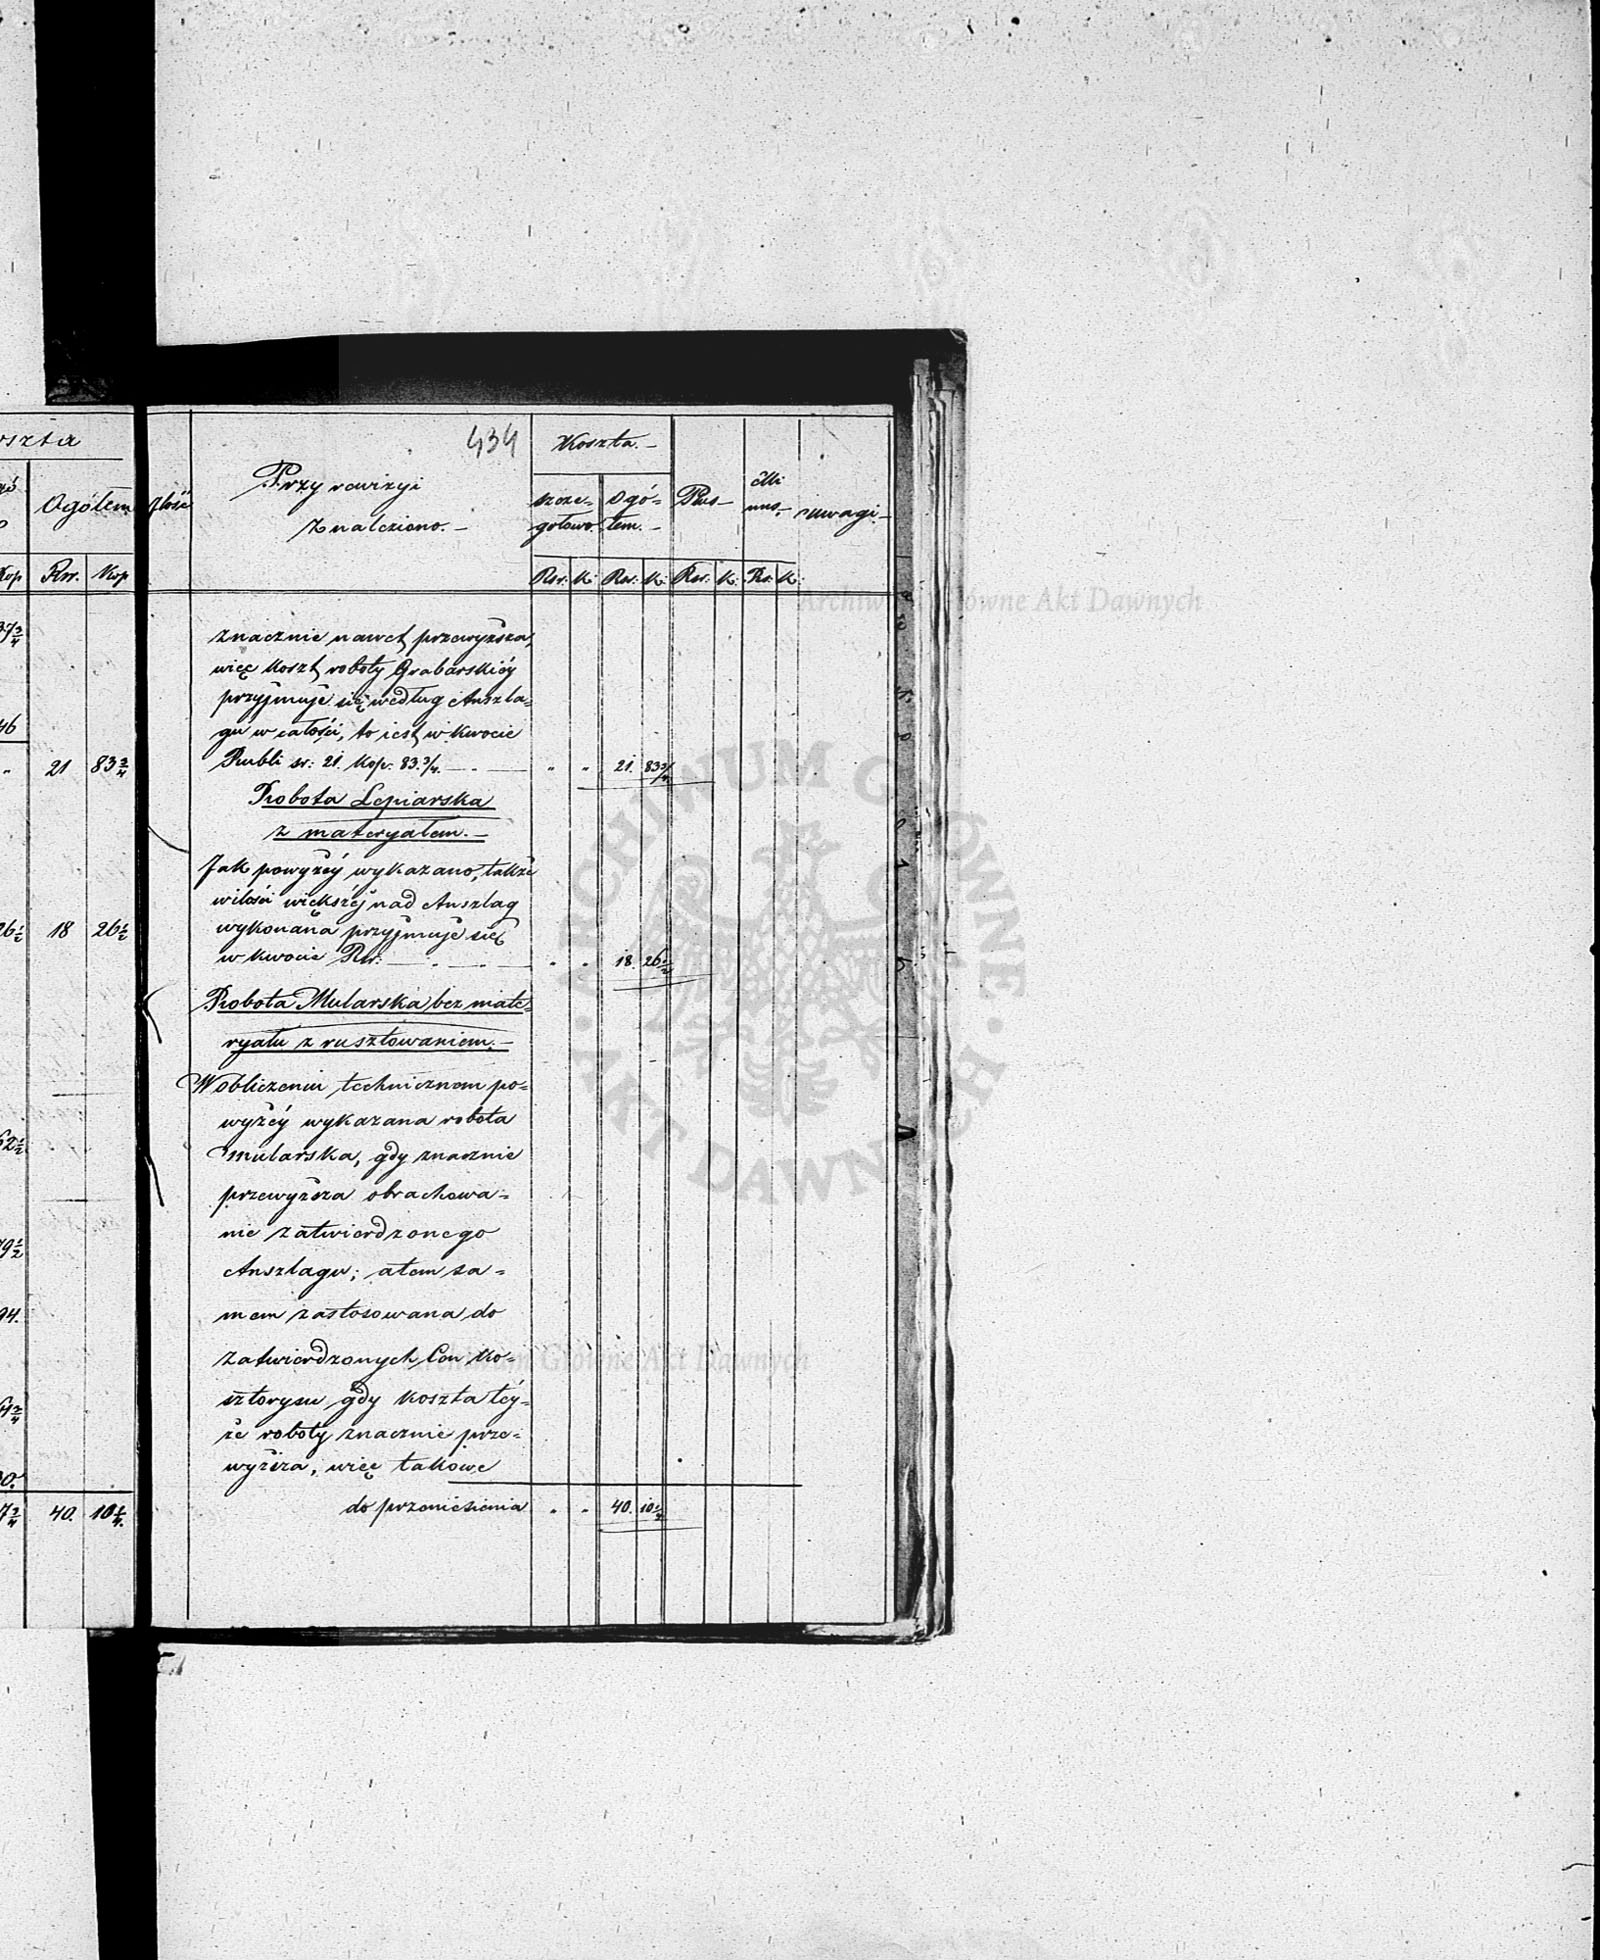 oszta
Ogółem
Kop Rsr. Kop
37 3/4
46
" 21 83 3/4
26 1/2 18 26 1/2
62 1/2
79 1/2
94.
7 3/4 40. 10 1/4.
434
Ilość
Przy rewizyi
Znaleziono.—
Koszta.—
szcze=
gołowo.
Ogó=
łem.—
Plus—
Mi
nus,
uwagi.—
Rsr. K. Rsr. K. Rsr. K. Rs. K.
znacznie nawet przewyższa,
więc koszt roboty Grabarskiéy
przyjmuje się według Anszla=
gu w całości, to iest w kwocie
Rubli sr: 21. Kop: 83.3/4. — . — " " 21. 83 3/4
Robota Lepiarska
z materyałem.—
Jak powyżéy wykazano, także
w ilości większéj nad Anszlag
wykonana przyjmuje się
w kwocie Rsr. — . — . — " " 18. 26 1/2
Robota Mularska bez mate=
ryału z rusztowaniem.—
W obliczeniu technicznem po=
wyżéy wykazana robota
mularska, gdy znacznie
przewyższa obrachowa=
nie zatwierdzonego
Anszlagu; a tem sa=
mem zastosowana do
Zatwierdzonych Cen Ko=
sztorysu gdy koszta téy=
że roboty znacznie prze=
wyższa, więc takowe
do przeniesienia " " 40. 10 1/4
Archiwum Główne Akt Dawnych
ARCHIWUM GŁÓWNE
• AKT DAWNYCH •
Archiwum Główne Akt Dawnych